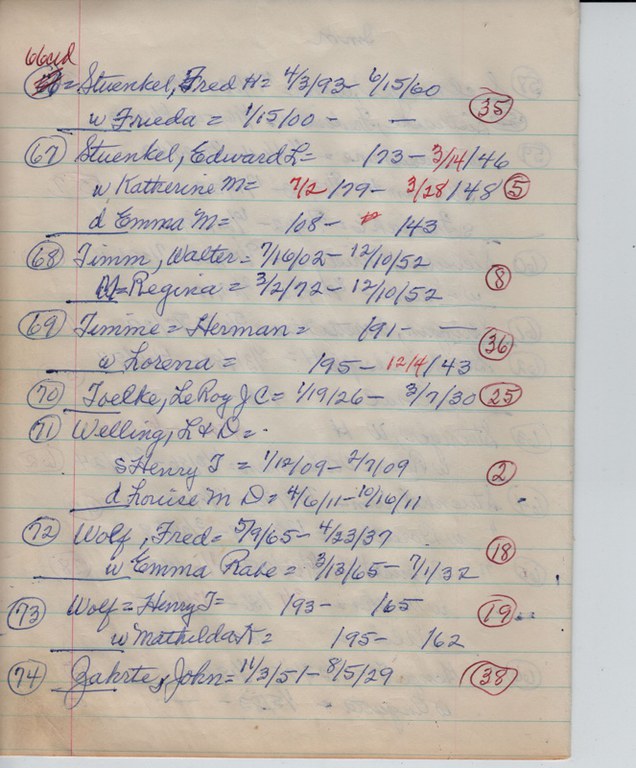 66
= Stuenkel, Fred H = 4/3/93 - 6/15/60
w Frieda = 1/15/00 - — (35)
(67) Stuenkel, Edward L = /73 - 3/14/46
w Katherine M = 7/2/79 - 3/28/48 (5)
d Emma M = /08 - /43
(68) Timm, Walter = 7/16/02 - 12/10/52
M = Regina = 3/2/72 - 12/10/52 (8)
(69) Timme = Herman = /91 - — (36)
w Lorena = /95 - 12/4/43
(70) Toelke, LeRoy J C = 1/19/26 - 3/7/30 (25)
(71) Welling, L & D =
s Henry T = 1/12/09 - 2/7/09 (2)
d Louise M D = 4/6/11 - 10/16/11
(72) Wolf, Fred = 5/9/65 - 4/23/37
w Emma Rabe = 3/13/65 - 7/1/32 (18)
(73) Wolf = Henry T = /93 - /65 (19)
w Mathilda K = /95 - /62
(74) Zahrte, John = 11/3/51 - 8/5/29 (38)